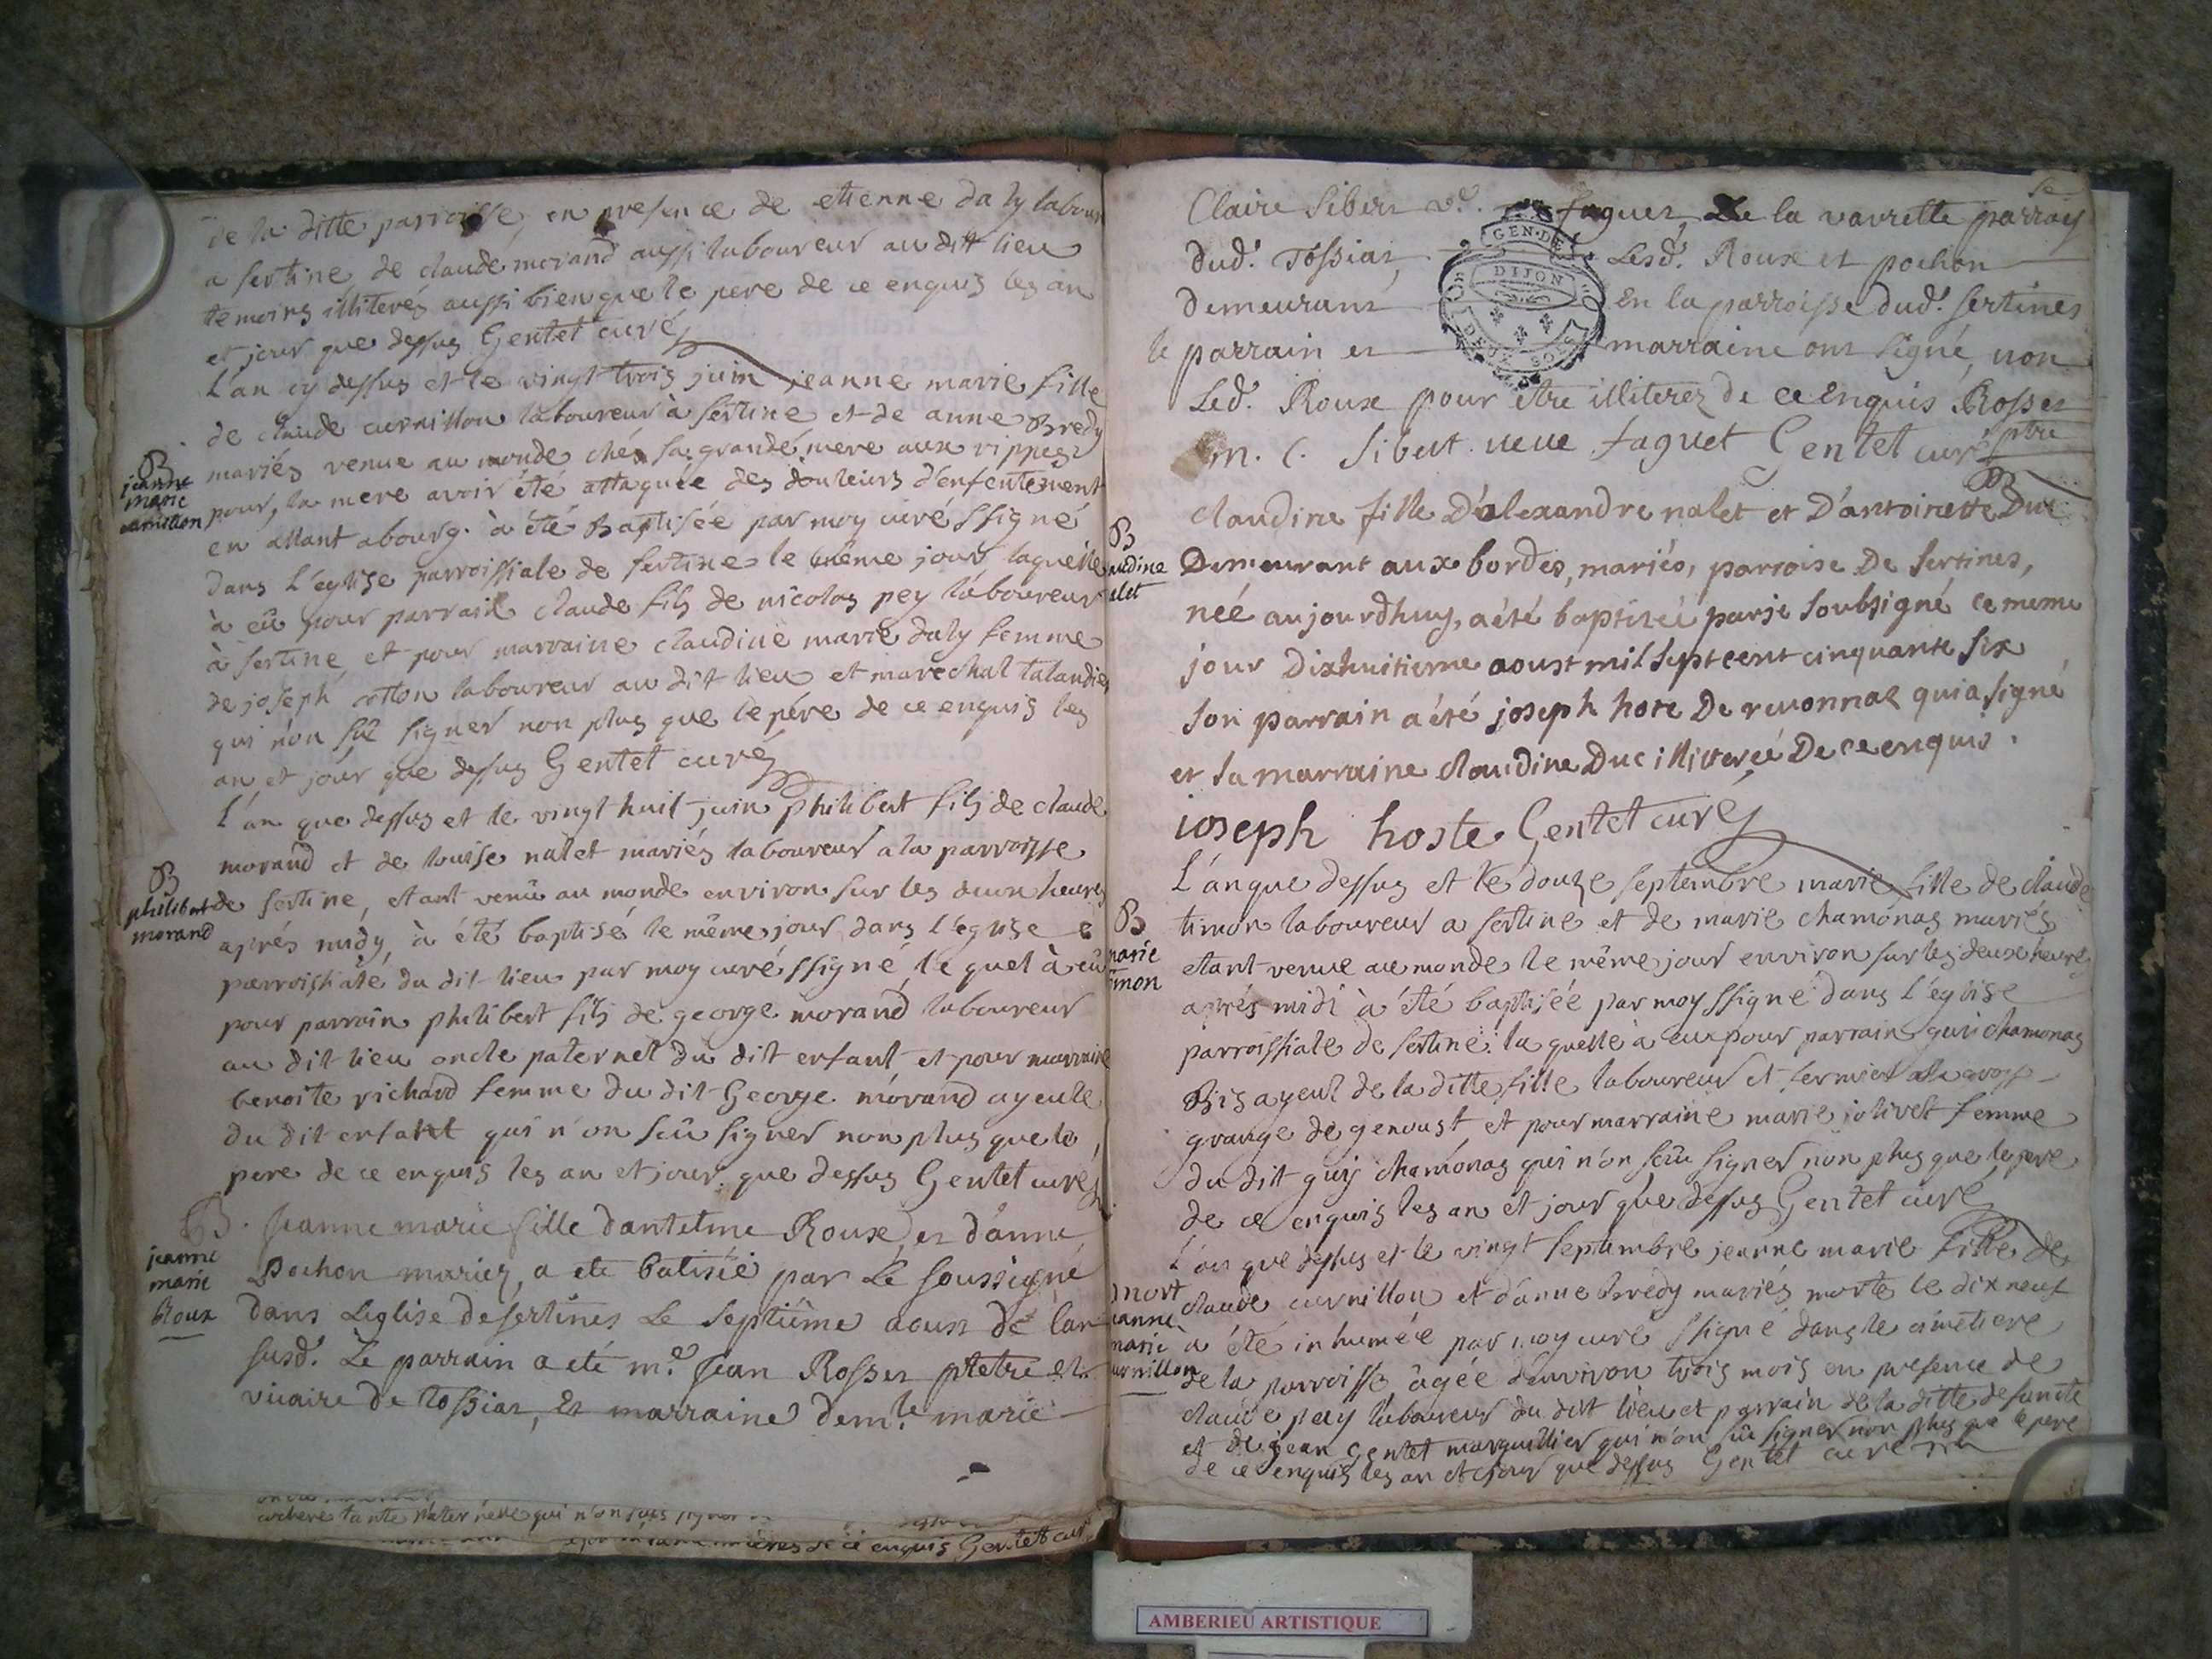 de la ditte parroisse, en presence de etienne daly labour
a sertine, de claude morand aussi laboureur au dit lieu
temoins illiterés aussi bien que le pere de ce enquis les an
et jour que dessus Gentet curé
L'an cy dessus et le vingt trois juin jeanne marie fille
de claude curnillon laboureur à sertine et de anne Bredy
mariés venue au monde chés sa grande mere aux rippes
B
jeanne
marie
curnillon
pour, la mere avoir été attaquée des douleurs d'enfentement
en allant abourg. à été Baptisée par moy curé ssigné
dans L'eglise parroissiale de sertine le même jour laquelle
à eû pour parrain claude fils de nicolas pey laboureur
à sertine et pour marraine claudine marie daly femme
de joseph cotton laboureur au dit lieu et marechal talandier
qui n'on sû signer non plus que le pére de ce enquis les
an et jour que dessus Gentet curé
L'an que dessus et le vingt huit juin philibert fils de claude
morand et de louise nalet mariés laboureur a la parroisse
B
philibert
morand
de sertine, etant venû au monde environ sur les deux heures
aprés midy, à été baptisé le même jour dans l'église
parroissiale du dit lieu par moy curé ssigné le quel à eû
pour parrain philibert fils de george morand laboureur
au dit lieu oncle paternel du dit enfant, et pour marraine
benoite richard femme du dit George morand ayeule
du dit enfant qui n'on sçû signer non plus que le
pere de ce enquis les an et jour que dessus Gentet curé
B
jeanne
marie
Roux
Jeanne marie fille dantelme Roux et d'anne
Pochon mariez, a ete batisée par Le soussigné
dans Leglise de sertines Le septiéme aoust de lan
susd. Le parrain a eté me. Jean Rosset pretre et
vicaire de Tossiat, Et marraine demlle marie
enquis Gentet curé
Claire Sibert ve. faguet, de la vavrette parrois
dud. Tossiat, Lesd. Roux et pochon
Demeurant En la parroisse dud. sertines
le parrain et marraine ont signé, non
Led. Roux pour être illiterez de ce Enquis Rosset
ptre
m. C. Sibert veue faguet Gentet curé
GEN. DE
DIJON
DEUX SOLS
B
audine
alet
claudine fille D'alexandre nalet et D'antoinette Duc
Demeurant aux bordes, mariés, parroise De sertines,
neé aujourdhuy, a été baptiseé par je soubsigné ce meme
jour Dixhuitieme aoust mil sept cent cinquante six
son parrain a été joseph hote De revonnas qui a signé
et sa marraine claudine Duc illitereé De ce enquis.
ioseph hoste Gentet curé
L'an que dessus et le douze septembre marie fille de claude
B
marie
timon
timon laboureur a sertine et de marie chamonas mariés
etant venue au monde le même jour environ sur les deux heures
aprés midi à été baptisée par moy ssigné dans L'eglise
parroissiale de sertine: la quelle à eu pour parrain gui chamonas
Bisayeul de la ditte fille laboureur et fermier
grange de genoust et pour marraine marie jolivet femme
du dit guy chamonas qui n'on sçû signer non plus que le pere
de ce enquis les an et jour que dessus Gentet curé
L'an que dessus et le vingt septembre jeanne marie fille de
mort
jeanne
marie
curnillon
claude curnillon et d'anne bredy mariés morte le dix neuf
à été inhumée par moy curé ssigné dans le cimetiere
de la parroisse âgée denviron trois mois en presence de
claude pey laboureur du dit lieu et parrain de la ditte defuncte
et de jean Gentet marguillier qui n'on sû signer non plus que le pere
de ce enquis les an et jour que dessus Gentet curé
AMBERIEU ARTISTIQUE